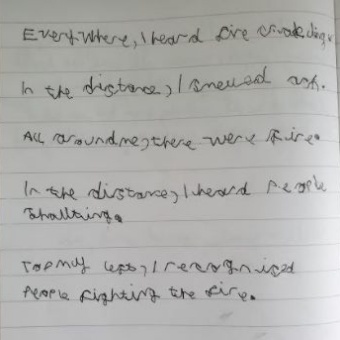 Everywhere, I heard fire crackling
In the distance, I smelled ash.
All around me, there were fire.
In the distance, I heard People
Shouting.
To my left, I recognised
People fighting the fire.